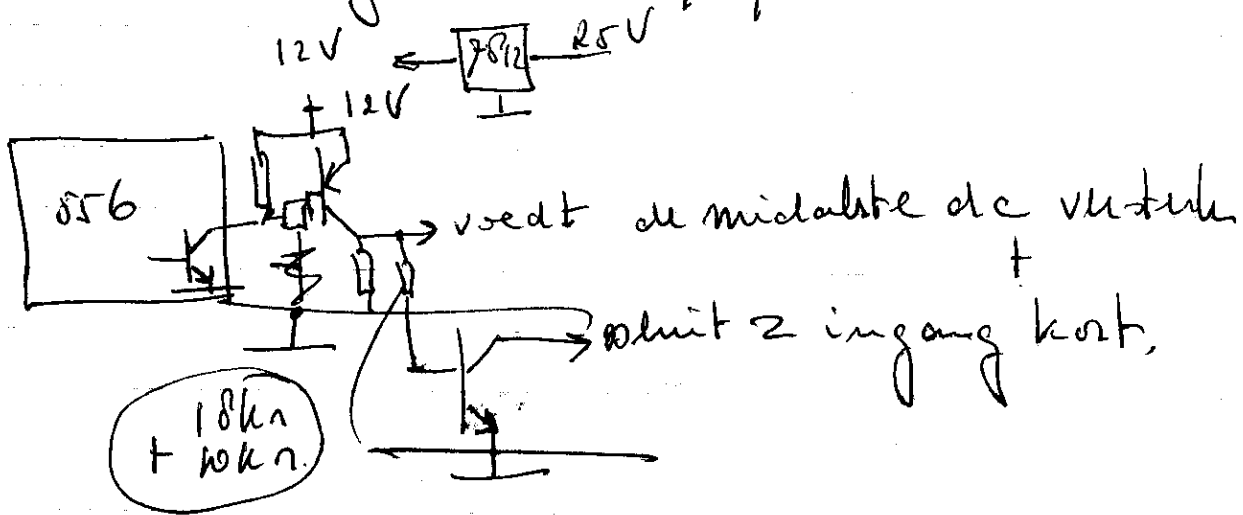 12V 7812 25V
+ 12V
556
voedt de middelste dc
+
sluit 2 ingang kort.
18kΩ
+ 10kΩ